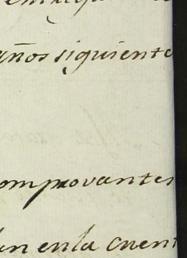 años siguiente
omprovantes
en enla cuen